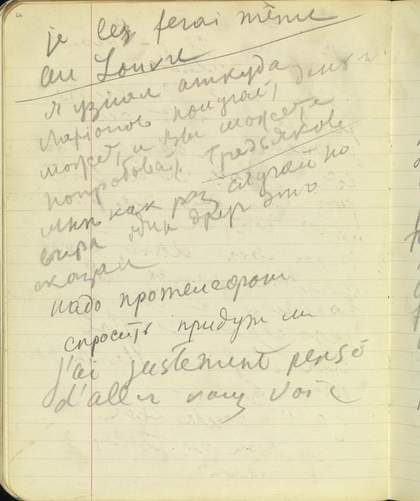 je les ferai même
au Louvre
я узнал откуда
Ларионов получает деньги
может, и Вы можете
попробовать Третьякове
мне как раз случайно
вчера один друг это
сказал
надо протелефони
спросить придут ли
j'ai justement pensé
d'aller vous voir